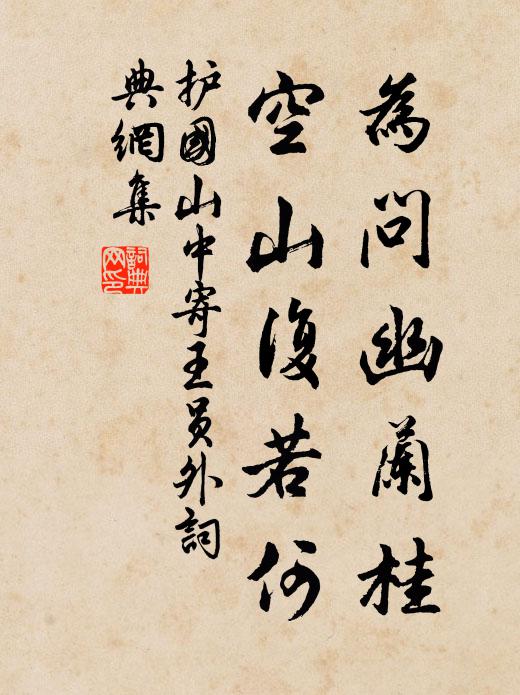 為問幽蘭桂
空山復若何
护國山中寄王员外詞
典網集
詞典
网印